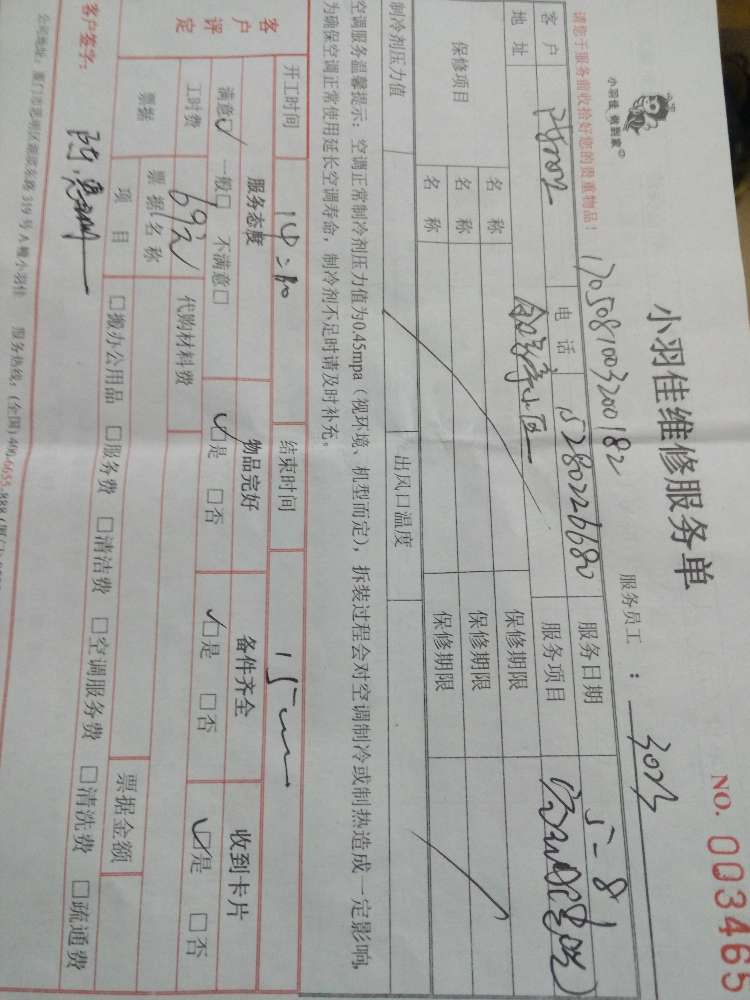 小羽佳 做到家
小羽佳维修服务单
NO. 003465
1705081003200182
服务员工：3023
请您于服务前收拾好您的贵重物品！
客户 电话 15280226680 服务日期 5-8
地址 小区 服务项目
保修项目 名称 保修期限
名称 保修期限
名称 保修期限
制冷剂压力值 出风口温度
空调服务温馨提示：空调正常制冷剂压力值为0.45mpa（视环境、机型而定），拆装过程会对空调制冷或制热造成一定影响，
为确保空调正常使用延长空调寿命，制冷剂不足时请及时补充。
开工时间 结束时间
客户评定 服务态度 物品完好 备件齐全 收到卡片
满意☑ 一般□ 不满意□ ☑是 □否 ☑是 □否 ☑是 □否
工时费 69元 代购材料费
票据 票据名称 票据金额
项目 □搬办公用品 □服务费 □清洁费 □空调服务费 □清洗费 □疏通费
客户签字：
公司地址：厦门市思明区湖滨东路319号A幢小羽佳 服务热线：(全国)400-6655-888